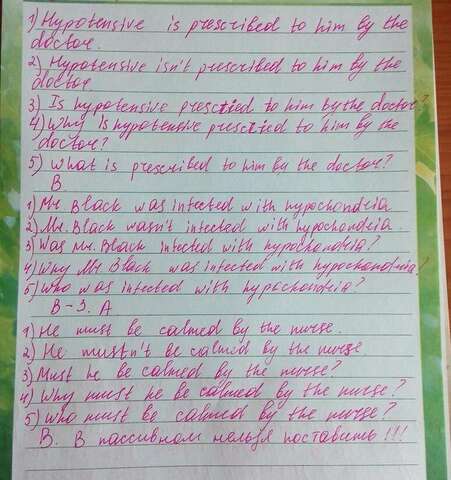 1) Hypotensive is prescribed to him by the
doctor.
2) Hypotensive isn't prescribed to him by the
doctor.
3) Is hypotensive prescried to him by the doctor?
4) Why is hypotensive prescried to him by the
doctor?
5) What is prescribed to him by the doctor?
B
1) Mr Black was infected with hypochondria
2) Mr. Black wasn't infected with hypochondria.
3) Was Mr. Black infected with hypochondria?
4) Why Mr Black was infected with hypochondria?
5) Who was infected with hypochondria?
B-3. A
1) He must be calmed by the nurse.
2) He mustn't be calmed by the nurse
3) Must he be calmed by the nurse?
4) Why must he be calmed by the nurse?
5) Who must be calmed by the nurse?
B. В пассивном нельзя поставить!!!